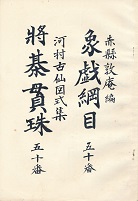 赤縣敦庵編
象戯綱目
五十番
河村古仙図式集
將棊貫珠
五十番